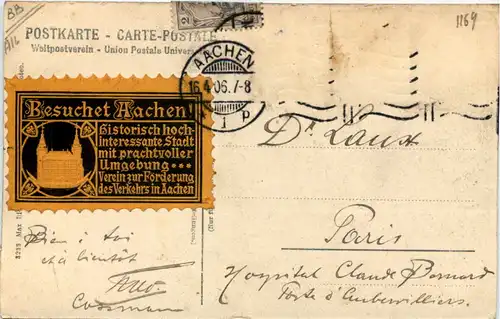 BB
A16
1169
POSTKARTE - CARTE-POSTALE
Weltpostverein - Union Postale Univers
2
AACHEN
16.4.06.7-8
1 p
Besuchet Aachen!
Historisch hoch-
interessante Stadt
mit prachtvoller
Umgebung ···
Verein zur Förderung
des Verkehrs in Aachen
Dr Laux
Paris
Hospital Claude Bernard
Porte d'Aubervilliers.
Bien à toi
et à bientôt